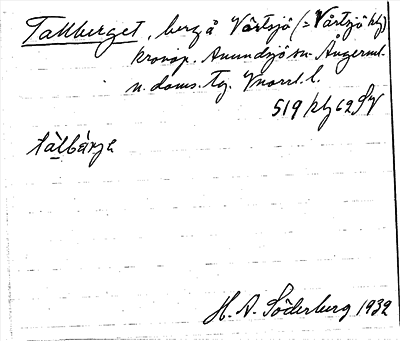 Tallberget, berg å Vårtsjö (= Vårtsjö klj)
kronop. Anundsjö sn. Ångerml.
n. doms. tg. Vnorrl. l.
519/klj 62 SV
tàlbárje
H. A. Söderberg 1932